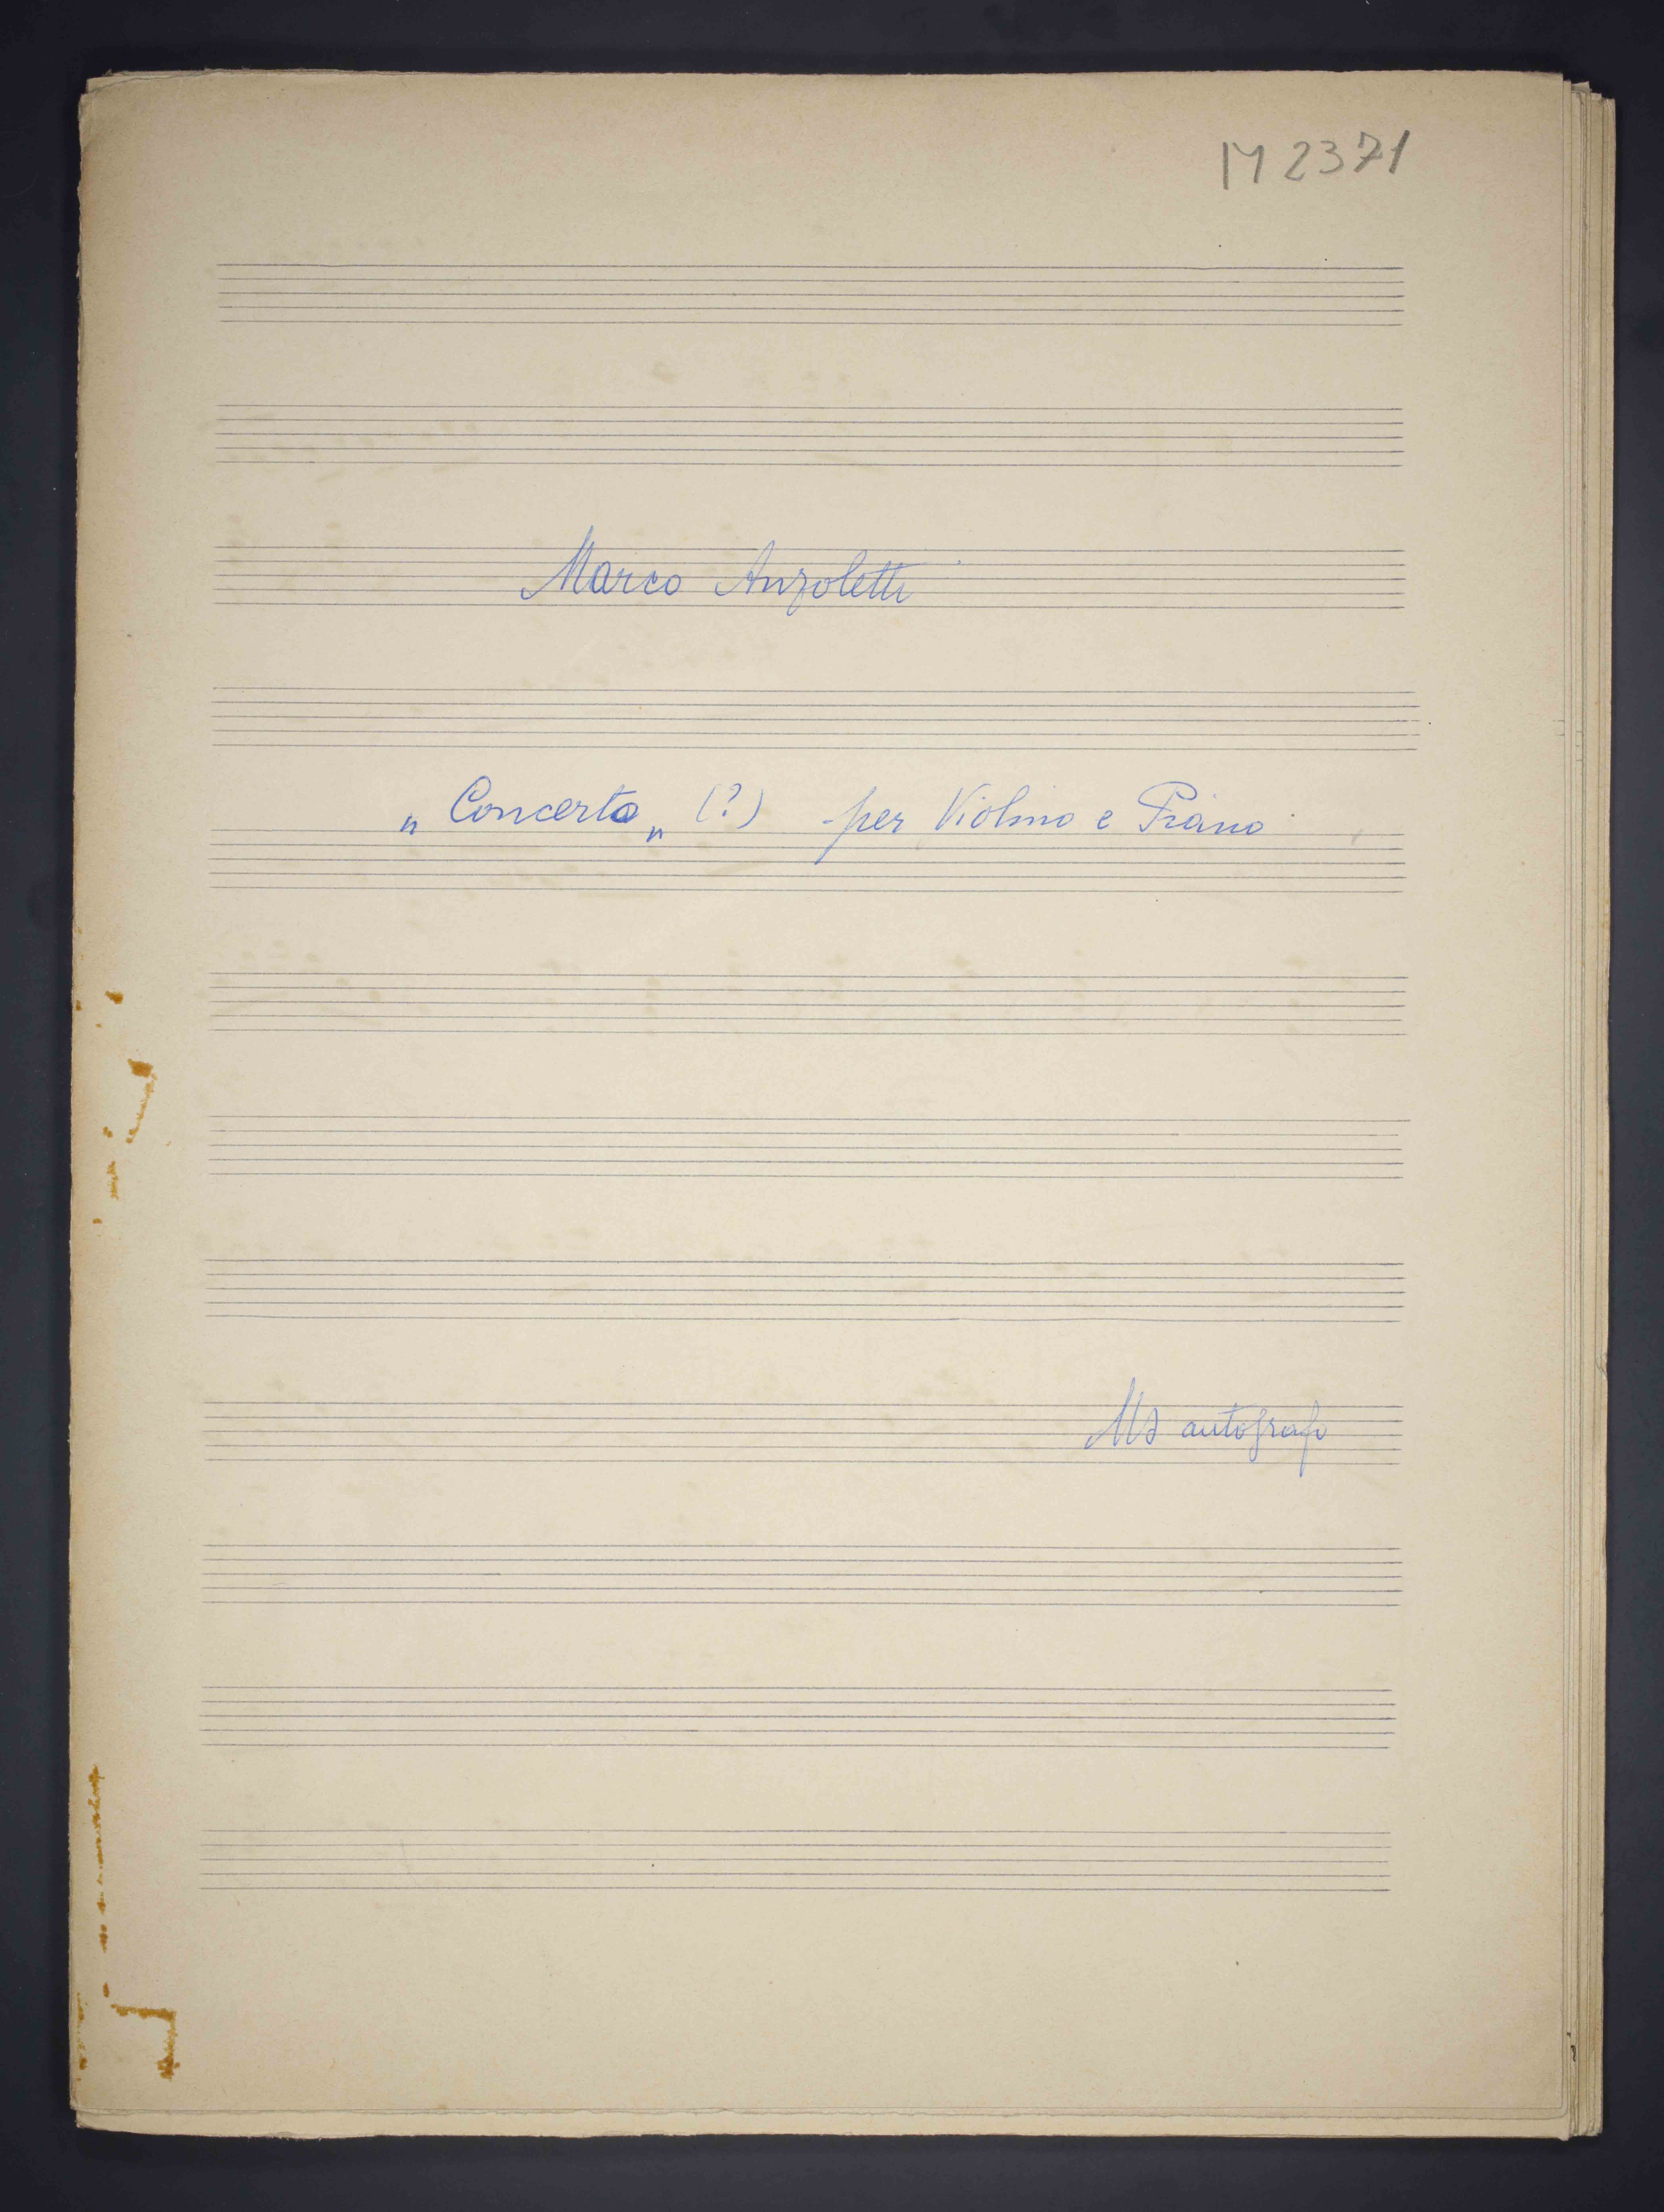 M 2371
Marco Anzoletti
„Concerto„ (?) per Violino e Piano
Ms autografo